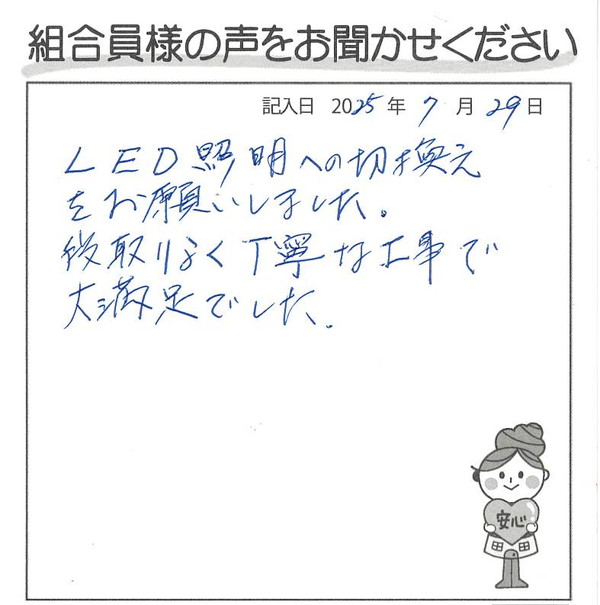 組合員様の声をお聞かせください
記入日 2025年 7月 29日
LED照明への切換え
をお願いしました。
段取りよく丁寧な工事で
大満足でした。
安心